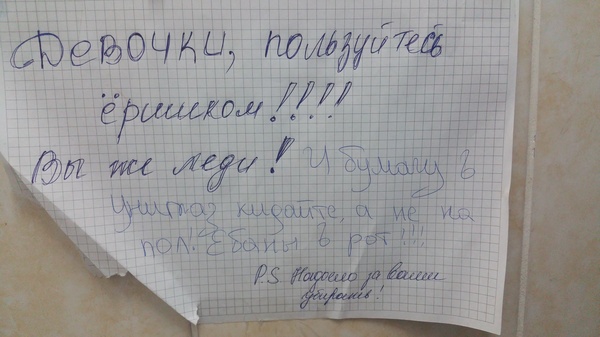 Девочки, пользуйтесь
ёршиком!!!!
Вы же леди! И бумагу в
унитаз кидайте, а не на
пол! Ебаны в рот!!!
P.S. Надоело за вами
убирать!